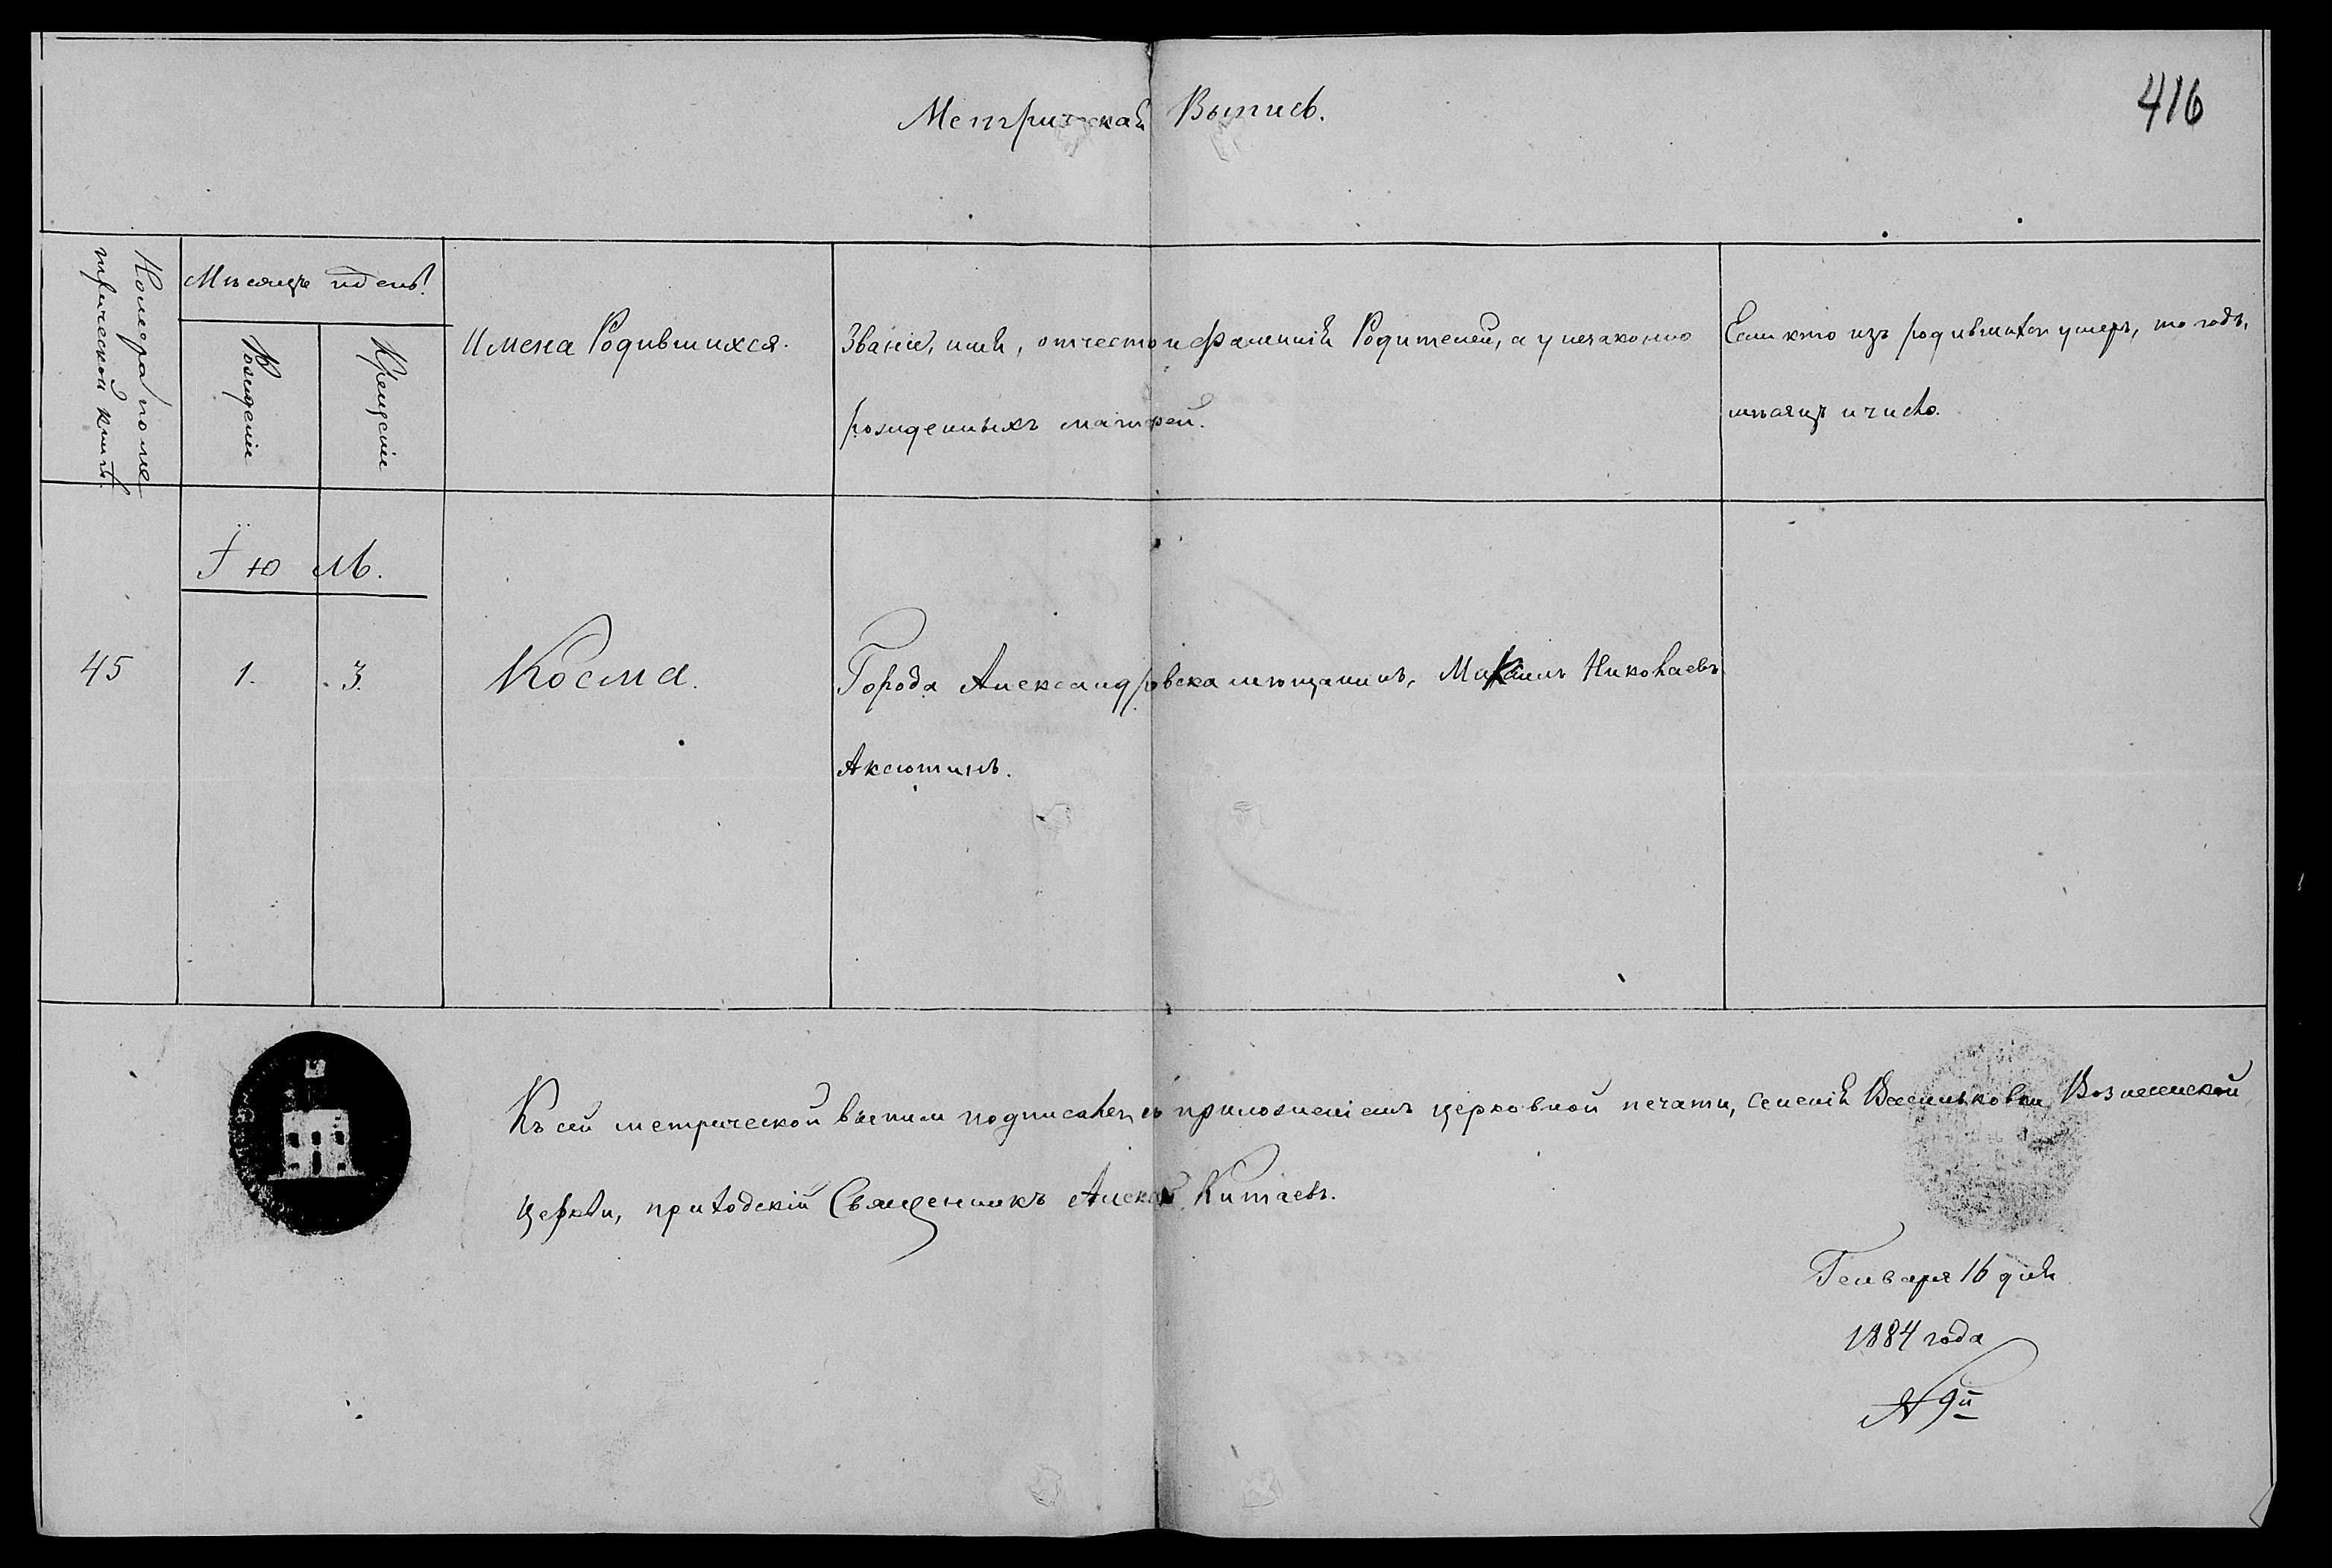 416
Метрическая Выпись.
Номера по ме-
трической книгѣ.
Мѣсяцъ и день.
Рожденіе
Крещеніе
Имена Родившихся.
Званіе, имя, отчество и фамилія Родителей, а у незаконно
рожденныхъ матерей.
Если кто изъ родившихся умеръ, то годъ,
мѣсяцъ и число.
Іюль.
45
1.
3.
Косма.
Города Александровска мѣщанинъ, Михаилъ Николаевъ
Аксютинъ.
Къ сей метрической выписи подписался съ приложеніемъ церковной печати, селенія Васильковки Вознесенской
церкви, приходскій Священникъ Алексѣй Китаевъ.
Генваря 16 дня
1884 года
№ 9й